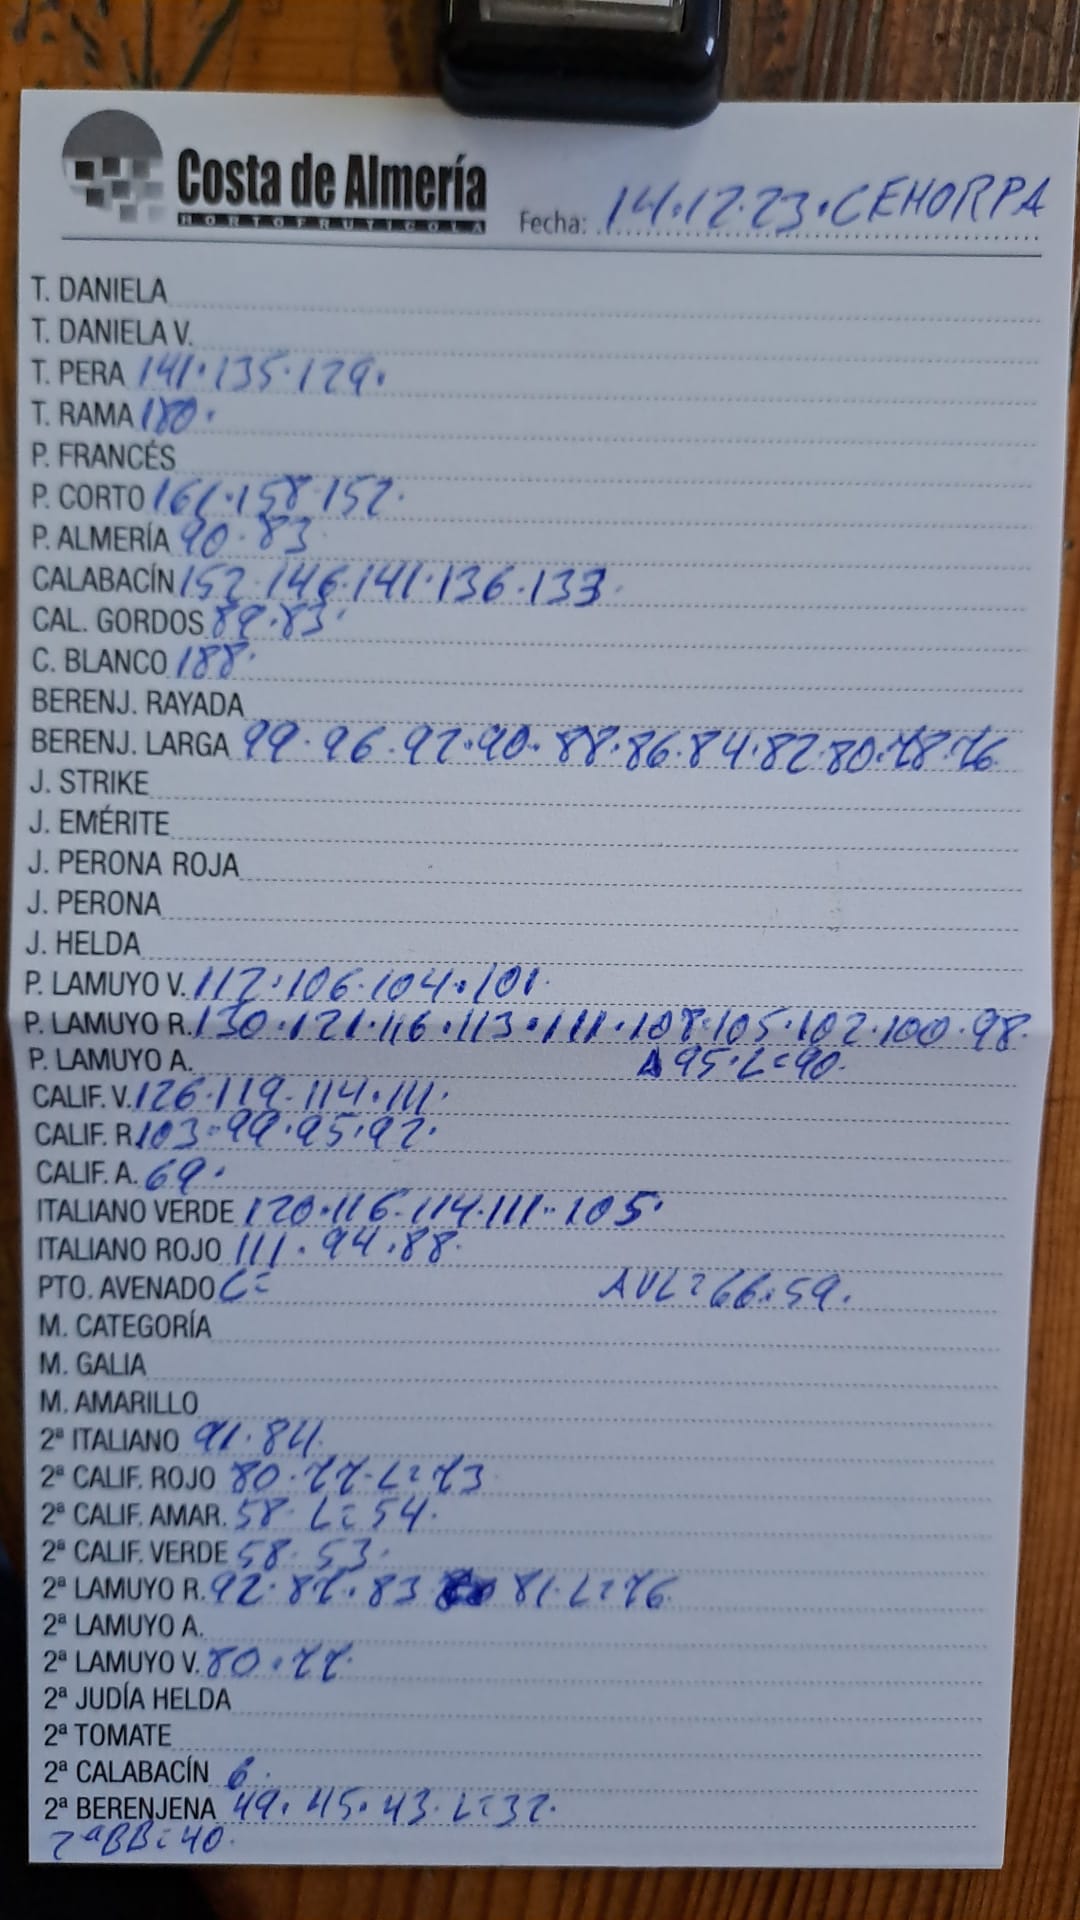 Costa de Almería
HORTOFRUTICOLA
Fecha: 14.12.23.CEHORPA
T. DANIELA
T. DANIELA V.
T. PERA 141.135.129.
T. RAMA 180.
P. FRANCÉS
P. CORTO 161.158.152.
P. ALMERÍA 90.83
CALABACÍN 152.146.141.136.133.
CAL. GORDOS 89.83.
C. BLANCO 188.
BERENJ. RAYADA
BERENJ. LARGA 99.96.92.90.88.86.84.82.80.78.76.
J. STRIKE
J. EMÉRITE
J. PERONA ROJA
J. PERONA
J. HELDA
P. LAMUYO V. 112.106.104.101.
P. LAMUYO R. 130.121.116.113.111.108.105.102.100.98.
P. LAMUYO A. 95.L=90.
CALIF. V. 126.119.114.111.
CALIF. R. 103.99.95.92.
CALIF. A. 69.
ITALIANO VERDE 120.116.114.111.105.
ITALIANO ROJO 111.94.88.
PTO. AVENADO L= AVL=66.59.
M. CATEGORÍA
M. GALIA
M. AMARILLO
2ª ITALIANO 91.84.
2ª CALIF. ROJO 80.77.L=73
2ª CALIF. AMAR. 58.L=54.
2ª CALIF. VERDE 58.53.
2ª LAMUYO R. 92.87.83 81.L=76.
2ª LAMUYO A.
2ª LAMUYO V. 80.77.
2ª JUDÍA HELDA
2ª TOMATE
2ª CALABACÍN 6.
2ª BERENJENA 49.45.43.L=37.
2ªBB=40.